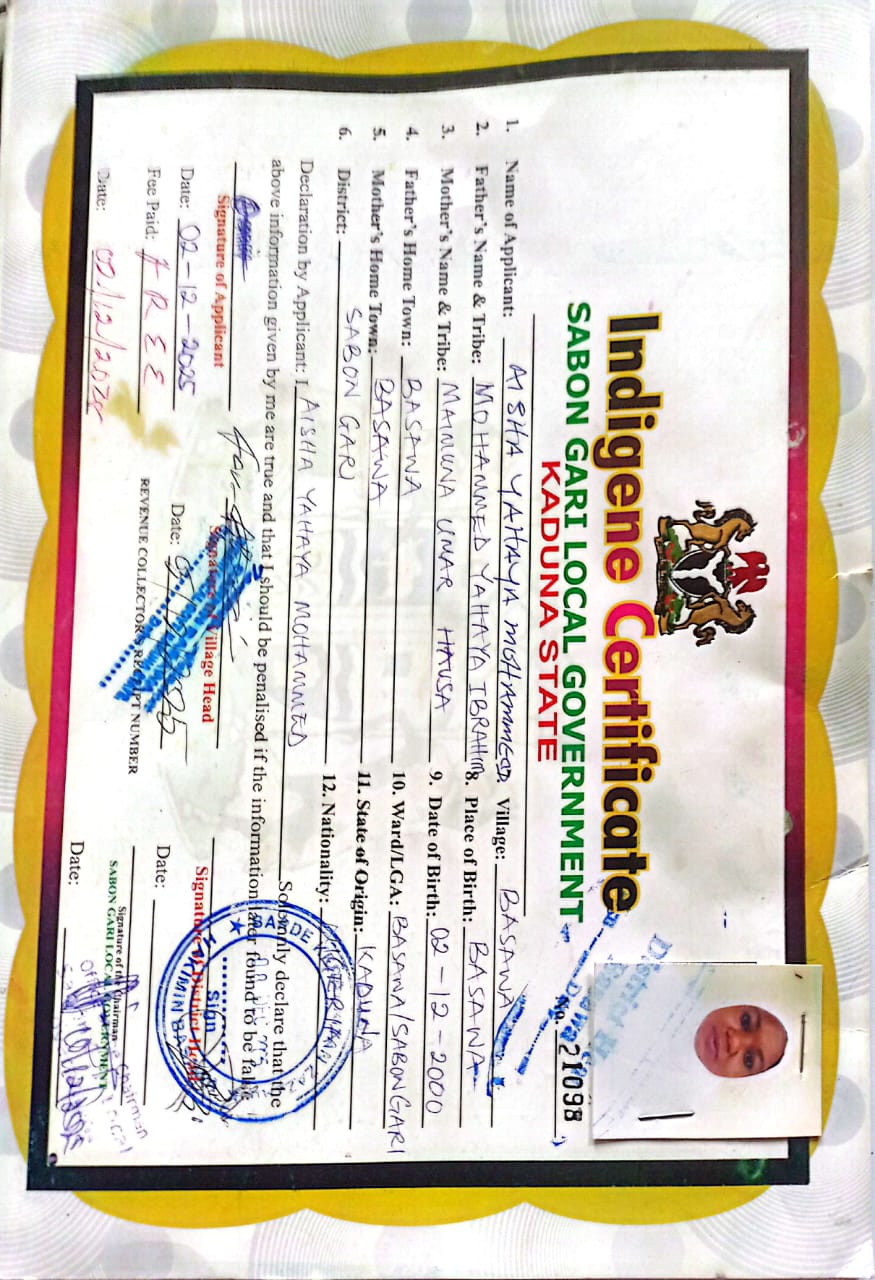 Indigene Certificate
SABON GARI LOCAL GOVERNMENT
KADUNA STATE
No. 21098
1. Name of Applicant: AISHA YAHAYA MOHAMMED
Village: BASAWA
2. Father's Name & Tribe: MOHAMMED YAHAYA IBRAHIM
8. Place of Birth: BASAWA
3. Mother's Name & Tribe: MAIMUNA UMAR HAUSA
9. Date of Birth: 02-12-2000
4. Father's Home Town: BASAWA
10. Ward/LGA: BASAWA/SABON GARI
5. Mother's Home Town: BASAWA
11. State of Origin: KADUNA
6. District: SABON GARI
12. Nationality:
Declaration by Applicant: I AISHA YAHAYA MOHAMMED Solemnly declare that the
above information given by me are true and that I should be penalised if the information later found to be false
Signature of Applicant
Signature of Village Head
Signature of District Head
Date: 02-12-2025
Date:
Date:
Fee Paid: FREE
REVENUE COLLECTOR'S RECEIPT NUMBER
Signature of the Chairman
SABON GARI LOCAL GOVERNMENT
Date: 02/12/2025
Date:
Sign